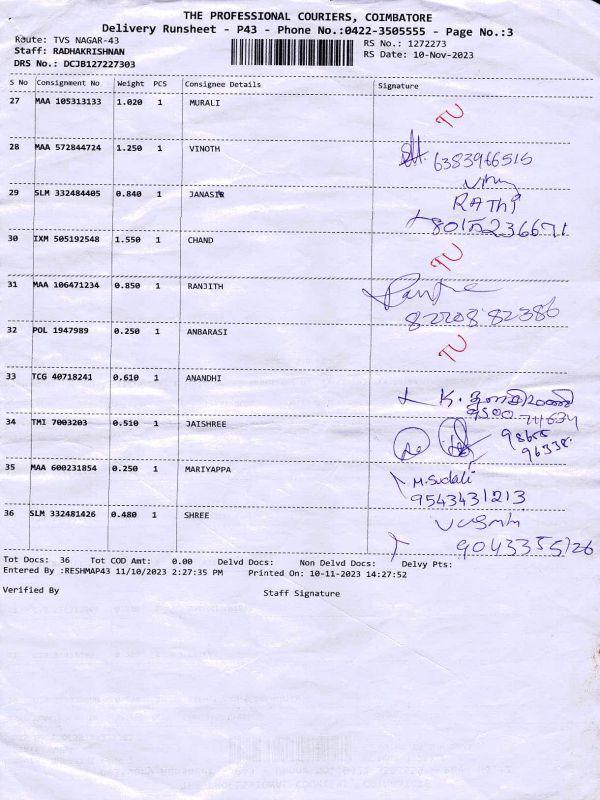 THE PROFESSIONAL COURIERS, COIMBATORE
Delivery Runsheet - P43 - Phone No.:0422-3505555 - Page No.:3
Route: TVS NAGAR-43
RS No.: 1272273
Staff: RADHAKRISHNAN
RS Date: 10-Nov-2023
DRS No.: DCJB127227303
S No Consignment No Weight PCS Consignee Details Signature
27 MAA 105313133 1.020 1 MURALI TU
28 MAA 572844724 1.250 1 VINOTH
6383966515
29 SLM 332484405 0.840 1 JANASIR RATHI
8015236671
30 IXM 505192548 1.550 1 CHAND TU
31 MAA 106471234 0.850 1 RANJITH
82208 82386
32 POL 1947989 0.250 1 ANBARASI TU
33 TCG 40718241 0.610 1 ANANDHI K.
34 TMI 7003203 0.510 1 JAISHREE
96338
35 MAA 600231854 0.250 1 MARIYAPPA M.Sudali
9543431213
36 SLM 332481426 0.480 1 SHREE
9043355126
Tot Docs: 36 Tot COD Amt: 0.00 Delvd Docs: Non Delvd Docs: Delvy Pts:
Entered By :RESHMAP43 11/10/2023 2:27:35 PM Printed On: 10-11-2023 14:27:52
Verified By Staff Signature